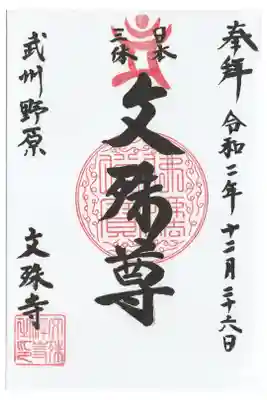 奉拝 令和二年十二月二十六日
日本
三体
文殊尊
武州野原
文殊寺